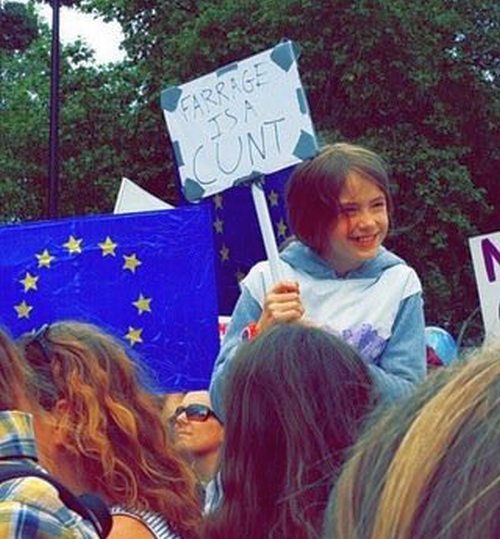 FARRAGE
IS A
CUNT